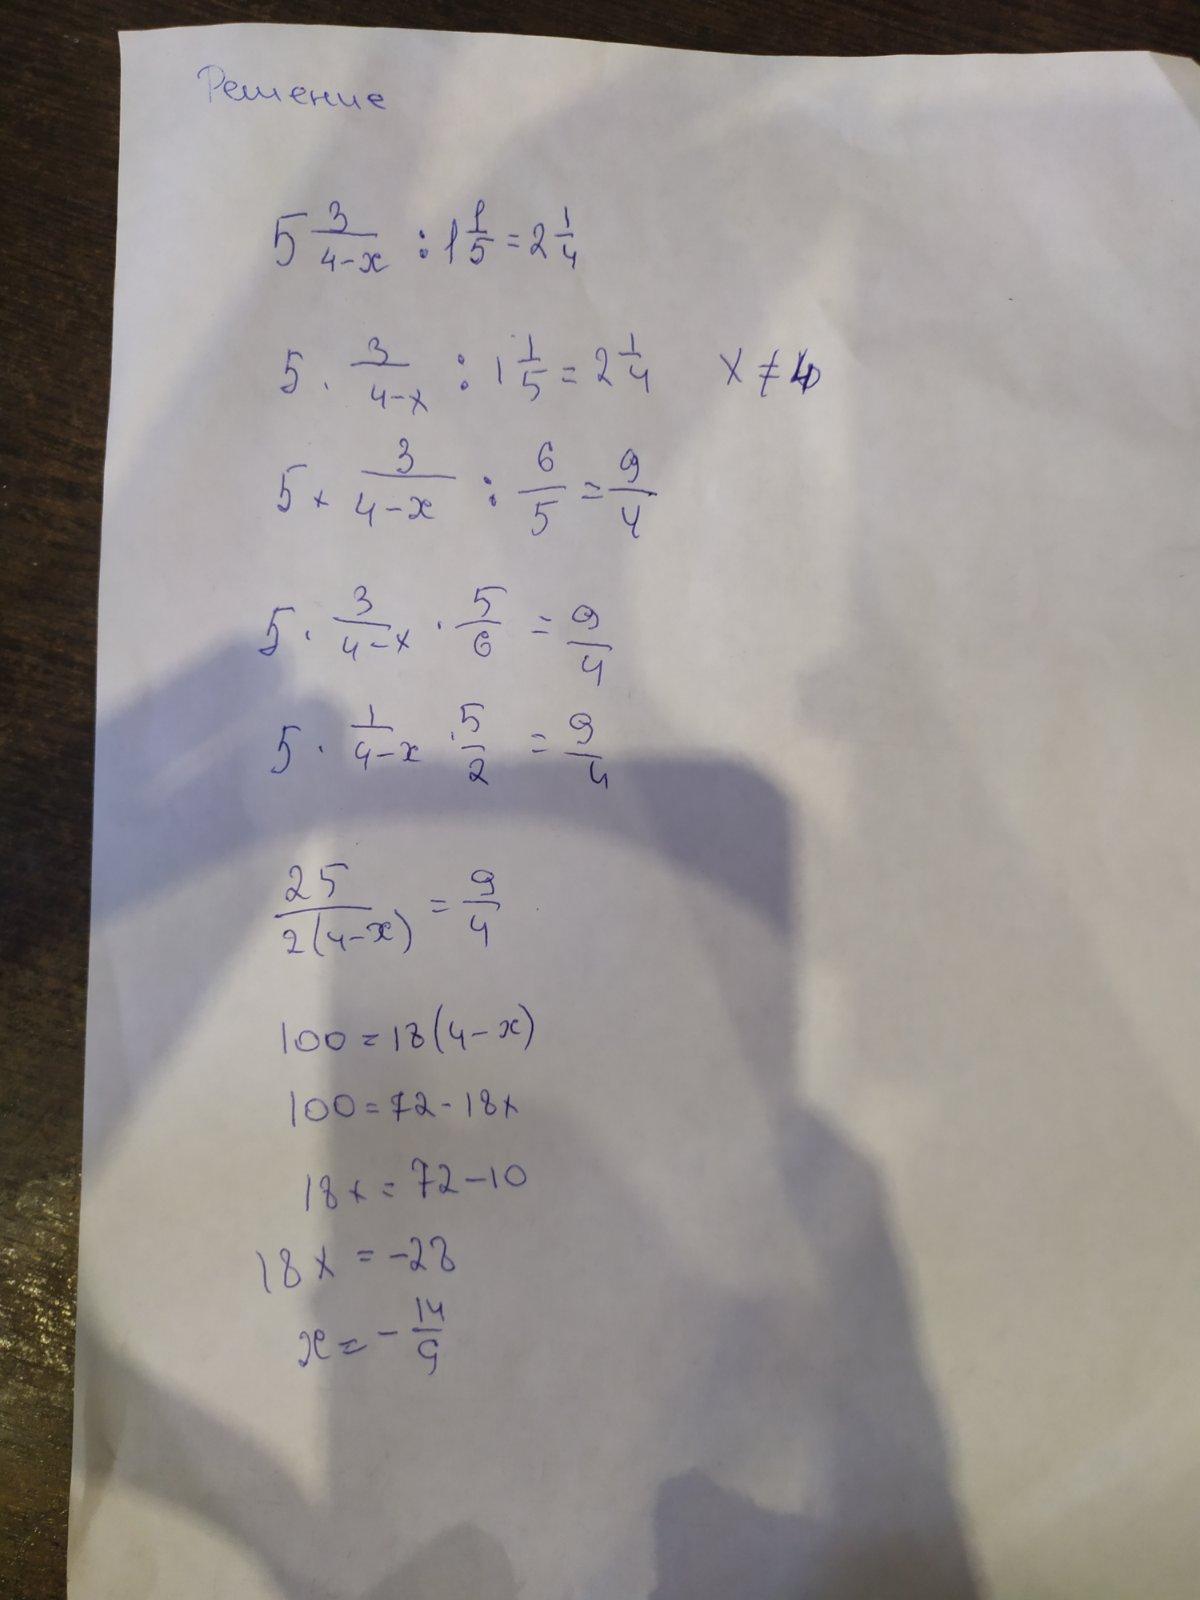 Решение
5 3/(4-x) : 1 1/5 = 2 1/4
5 · 3/(4-x) : 1 1/5 = 2 1/4 x ≠ 4
5 × 3/(4-x) : 6/5 = 9/4
5 · 3/(4-x) · 5/6 = 9/4
5 · 1/(4-x) · 5/2 = 9/4
25/(2(4-x)) = 9/4
100 = 18(4-x)
100 = 72 - 18x
18x = 72 - 10
18x = -28
x = - 14/9